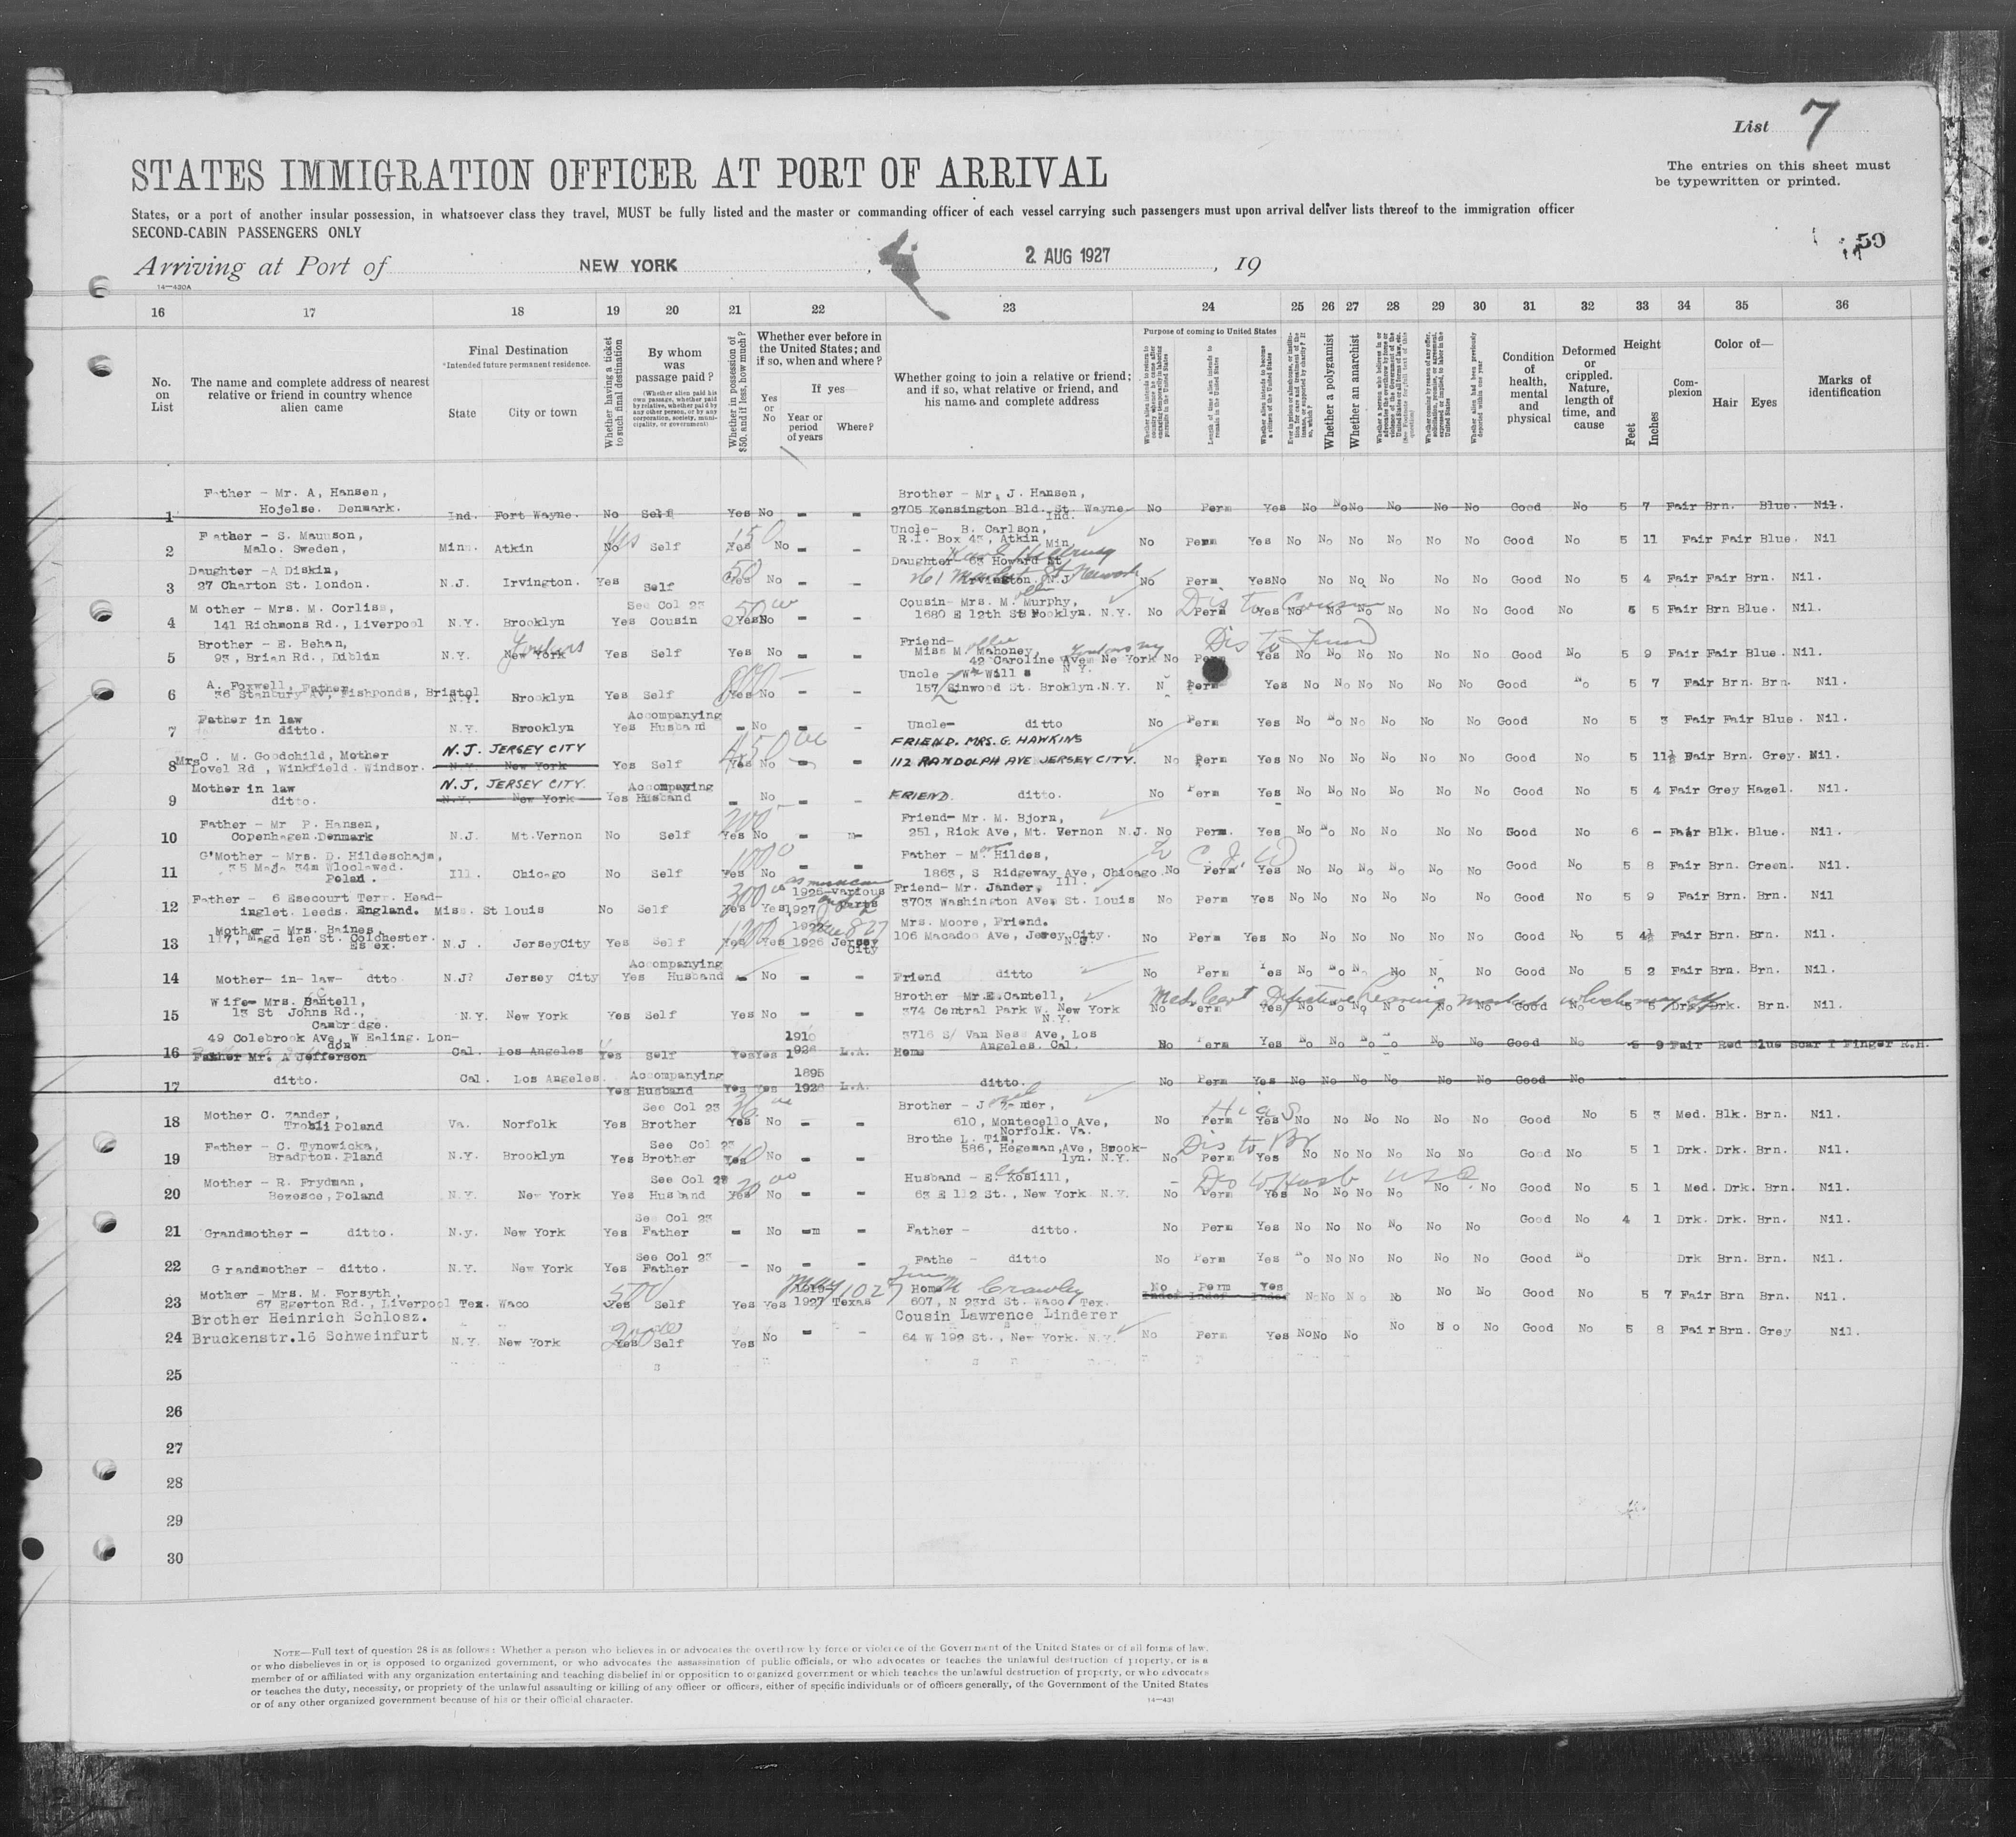 List 7
STATES IMMIGRATION OFFICER AT PORT OF ARRIVAL
The entries on this sheet must
be typewritten or printed.
States, or a port of another insular possession, in whatsoever class they travel, MUST be fully listed and the master or commanding officer of each vessel carrying such passengers must upon arrival deliver lists thereof to the immigration officer
SECOND-CABIN PASSENGERS ONLY
59
Arriving at Port of NEW YORK, 2 AUG 1927, 19
14—430A
16 17 18 19 20 21 22 23 24 25 26 27 28 29 30 31 32 33 34 35 36
No. on List
The name and complete address of nearest relative or friend in country whence alien came
Final Destination
*Intended future permanent residence.
State City or town
Whether having a ticket to such final destination
By whom was passage paid?
(Whether alien paid his own passage, whether paid by relative, whether paid by any other person, or by any corporation, society, municipality, or government)
Whether in possession of $50, and if less, how much?
Whether ever before in the United States; and if so, when and where?
Yes or No
If yes—
Year or period of years Where?
Whether going to join a relative or friend; and if so, what relative or friend, and his name and complete address
Purpose of coming to United States
Length of time alien intends to remain in the United States
Whether alien intends to become a citizen of the United States
Whether a polygamist
Whether an anarchist
Whether alien had been previously deported within one year
Condition of health, mental and physical
Deformed or crippled. Nature, length of time, and cause
Height
Feet Inches
Complexion
Color of—
Hair Eyes
Marks of identification
Father - Mr. A, Hansen, Brother - Mr. J. Hansen,
1 Hojelse. Denmark. Ind. Fort Wayne. No Self Yes No - - 2705 Kensington Bld. St. Wayne Ind. No Perm Yes No No No No No No Good No 5 7 Fair Brn. Blue. Nil.
Father - S. Maunson, Uncle- B. Carlson,
2 Malo. Sweden, Minn. Atkin No Yes Self Yes 150 No - - R.I. Box 43, Atkin Min. No Perm Yes No No No No No No Good No 5 11 Fair Fair Blue. Nil
Daughter -A Diskin, Daughter 63 Howard St
3 27 Charton St. London. N.J. Irvington. Yes Self Yes 50 No - - Irvington. N.J. 261 Market St Newark No Perm Yes No No No No No No Good No 5 4 Fair Fair Brn. Nil.
Mother - Mrs. M. Corliss, See Col 23 Cousin- Mrs. M. Murphy,
4 141 Richmons Rd., Liverpool N.Y. Brooklyn Yes Cousin Yes No - - 1680 E 12th St Brooklyn. N.Y. No Perm Yes No No No No No No Good No 5 5 Fair Brn Blue. Nil.
Dis to Cousin
Brother - E. Behan, Yonkers Friend-
5 93, Brian Rd., Diblin N.Y. New York Yes Self Yes No - - Miss M. Mahoney, 42 Caroline Ave Ne York N.Y. No Perm Yes No No No No No No Good No 5 9 Fair Fair Blue. Nil.
Dis to Friend
A. Foxwell, Father Uncle - Wm Wills
6 36 Stanbury Av, Fishponds, Bristol N.Y. Brooklyn Yes Self Yes No - - 157 Linwood St. Broklyn.N.Y. N Perm Yes No No No No No No Good No 5 7 Fair Brn. Brn. Nil.
Father in law Accompanying
7 ditto. N.Y. Brooklyn Yes Husband - No - - Uncle- ditto No Perm Yes No No No No No No Good No 5 3 Fair Fair Blue. Nil.
Mrs C. M. Goodchild, Mother N.J. JERSEY CITY 450 FRIEND. MRS. G. HAWKINS
8 Lovel Rd, Winkfield. Windsor. N.Y. New York Yes Self Yes No - - 112 RANDOLPH AVE. JERSEY CITY. No Perm Yes No No No No No No Good No 5 11½ Fair Brn. Grey. Nil.
Mother in law N.J. JERSEY CITY. Accompaying
9 ditto. N.Y. New York Yes Husband - No - - FRIEND. ditto. No Perm Yes No No No No No No Good No 5 4 Fair Grey Hazel. Nil.
Father - Mr P. Hansen, 200 Friend- Mr. M. Bjorn,
10 Copenhagen.Denmark N.J. Mt.Vernon No Self Yes No - - 251, Rick Ave, Mt. Vernon N.J. No Perm. Yes No No No No No No Good No 6 - Fair Blk. Blue. Nil.
G'Mother - Mrs. D. Hildeschajm, 100 Father - M. Hildes,
11 35 Maja 34m Wloclawed. Poland. Ill. Chicago No Self Yes No - - 1863, S Ridgeway Ave, Chicago Ill. No Perm Yes No No No No No No Good No 5 8 Fair Brn. Green. Nil.
Father - 6 Esecourt Terr. Head- 300 1926-various Friend- Mr. Jander,
12 inglet. Leeds. England. Miss. St Louis No Self Yes Yes, 1927 Parts 3703 Washington Ave St. Louis No Perm Yes No No No No No No Good No 5 9 Fair Brn. Brn. Nil
Mother - Mrs. Baines, 1200 Mrs. Moore, Friend.
13 117, Magdlen St. Colchester. Essex. N.J. JerseyCity Yes Self Yes Yes 1926 Jersey City 106 Macadoo Ave, Jersey City. N.J. No Perm Yes No No No No No No Good No 5 4½ Fair Brn. Brn. Nil.
Accompanying
14 Mother- in- law- dtto N.J? Jersey City Yes Husband - No - - Friend ditto No Perm Yes No No No No No No Good No 5 2 Fair Brn. Brn. Nil.
Wife- Mrs. Cantell, Brother -Mr.E.Cantell,
15 13 St Johns Rd., Cambridge. N.Y. New York Yes Self Yes No - - 374 Central Park W. New York N.Y. No Perm Yes No No No No No No Good No 5 5 Drk. Drk. Brn. Nil.
Med. Cert
49 Colebrook Ave, W Ealing. Lon- 1910 3716 S/ Van Ness Ave, Los
16 don Father Mr. A Jefferson Cal. Los Angeles Yes Self Yes Yes 1926 L.A. Home Angeles. Cal. No Perm Yes No No No No No No Good No 5 9 Fair Red Blue Scar I Finger R.H.
Accompanying 1895
17 ditto. Cal. Los Angeles. Yes Husband Yes Yes 1926 L.A. ditto. No Perm Yes No No No No No No Good No
See Col 23 Brother - J Zander,
18 Mother C. Zander, Poland Va. Norfolk Yes Brother Yes No - - 610, Montecello Ave, Norfolk. Va. No Perm Yes No No No No No No Good No 5 3 Med. Blk. Brn. Nil.
Hias
Father - C. Tynowicka, See Col 23 Brothe L. Tim,
19 Bradpton. Pland N.Y. Brooklyn Yes Brother Yes No - - 586, Hegeman,Ave, Brook- lyn. N.Y. No Perm Yes No No No No No No Good No 5 1 Drk. Drk. Brn. Nil.
Dis to Br
Mother - R. Frydman, See Col 23 Husband - E. Koslill,
20 Bezesce, Poland N.Y. New York Yes Husband Yes No - - 63 E 112 St., New York. N.Y. No Perm Yes No No No No No No Good No 5 1 Med. Drk. Brn. Nil.
See Col 23
21 Grandmother - ditto. N.y. New York Yes Father - No - - Father - ditto. No Perm Yes No No No No No No Good No 4 1 Drk. Drk. Brn. Nil.
See Col 23
22 Grandmother - ditto. N.Y. New York Yes Father - No - - Fathe - ditto No Perm Yes No No No No No No Good No Drk Brn. Brn. Nil.
Mother - Mrs. M. Forsyth, 500 Home M Crawley No Perm Yes
23 67 Egerton Rd., Liverpool Tex. Waco Yes Self Yes Yes 1927 Texas 607, N 23rd St. Waco Tex. Indef Indef Indef No No No No No No Good No 5 7 Fair Brn Brn. Nil.
Brother Heinrich Schlosz. 200 Cousin Lawrence Linderer
24 Bruckenstr.16 Schweinfurt N.Y. New York Yes Self Yes No - - 64 W 190 St., New York. N.Y. No Perm Yes No No No No No No Good No 5 8 Fair Brn. Grey Nil.
25
26
27
28
29
30
NOTE—Full text of question 28 is as follows: Whether a person who believes in or advocates the overthrow by force or violence of the Government of the United States or of all forms of law,
or who disbelieves in or is opposed to organized government, or who advocates the assassination of public officials, or who advocates or teaches the unlawful destruction of property, or is a
member of or affiliated with any organization entertaining and teaching disbelief in or opposition to organized government or which teaches the unlawful destruction of property, or who advocates
or teaches the duty, necessity, or propriety of the unlawful assaulting or killing of any officer or officers, either of specific individuals or of officers generally, of the Government of the United States
or of any other organized government because of his or their official character.
14—431